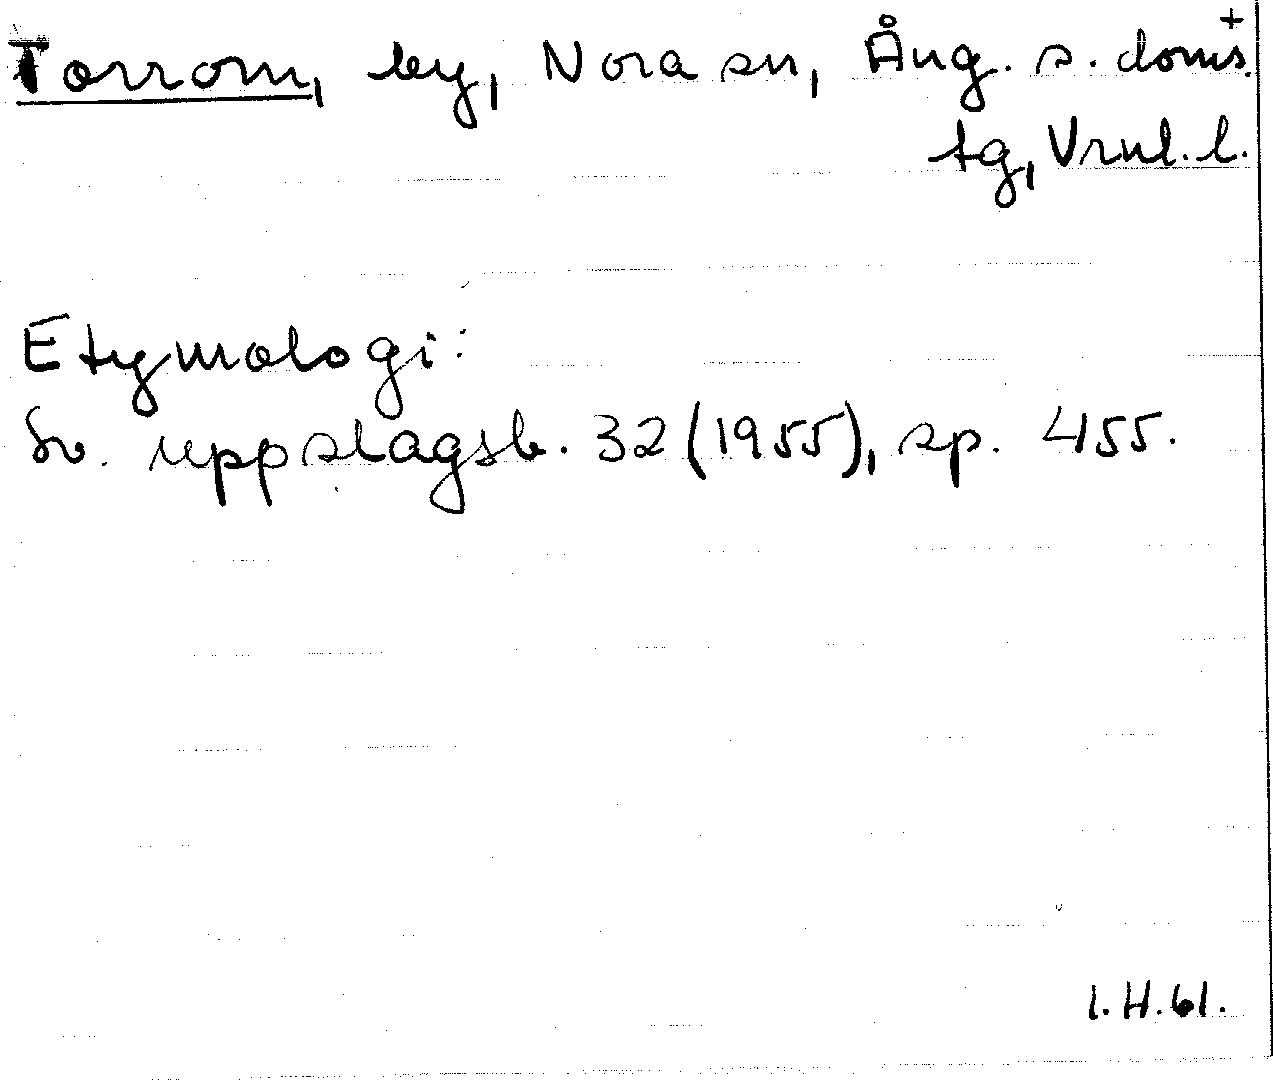 Torrom, by, Nora sn, Ång. s. doms.+
tg, Vrnl. l.
Etymologi:
Sv. uppslagsb. 32 (1955), sp. 455.
I. H. 61.